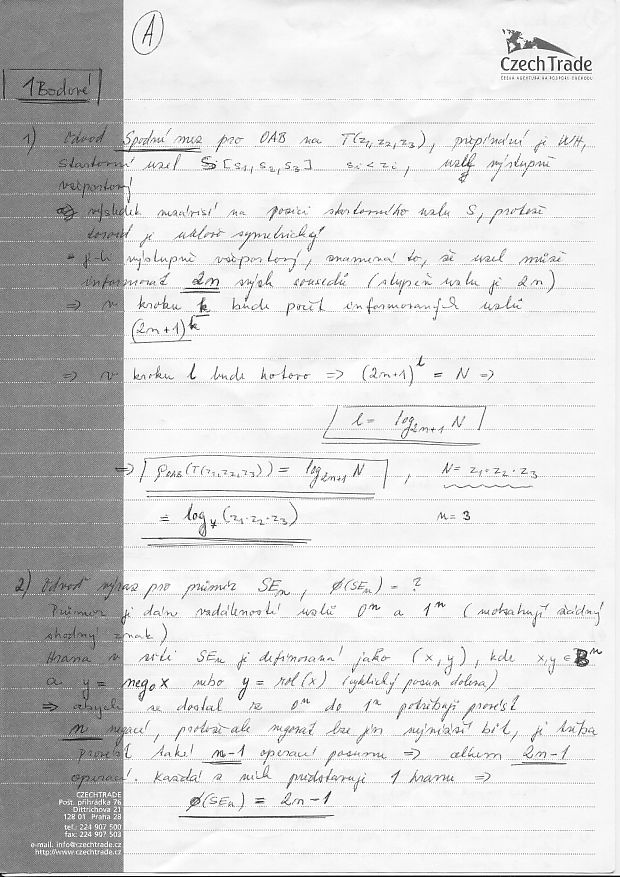 A
CzechTrade
ČESKÁ AGENTURA NA PODPORU OBCHODU
1 Bodové
1) Odvoď Spodní mez pro OAB na T(z₁,z₂,z₃), přepínání je WH,
startovní uzel S[s₁,s₂,s₃] sᵢ<zᵢ, uzly výstupně
všeportový
výsledek nezávisí na pozici startovního uzlu S, protože
toroid je uzlově symetrický
je-li výstupně všeportový, znamená to, že uzel může
informovat 2n svých sousedů (stupeň uzlu je 2n)
⇒ v kroku k bude počet informovaných uzlů
(2n+1)^k
⇒ v kroku l bude hotovo ⇒ (2n+1)^l = N ⇒
l = log₂ₙ₊₁ N
⇒ ρ_OAB(T(z₁,z₂,z₃)) = log₂ₙ₊₁ N , N = z₁·z₂·z₃
= log₇(z₁·z₂·z₃) n=3
2) Odvoď výraz pro průměr SEₙ , ø(SEₙ) = ?
Průměr je dán vzdáleností uzlů 0ⁿ a 1ⁿ (neobsahují žádný
shodný znak)
Hrana v síti SEₙ je definovaná jako (x,y), kde x,y ∈ Bⁿ
a y = neg₀x nebo y = rol(x) (cyklický posun doleva)
⇒ abych se dostal ze 0ⁿ do 1ⁿ potřebuji provést
n negací, protože ale negovat lze jen nejnižší bit, je třeba
provést také n-1 operací posunu ⇒ celkem 2n-1
operací. Každá z nich představuje 1 hranu ⇒
ø(SEₙ) = 2n-1
CZECHTRADE
Post. přihrádka 76
Dittrichova 21
128 01 Praha 28
tel.: 224 907 500
fax: 224 907 503
e-mail. info@czechtrade.cz
http://www.czechtrade.cz